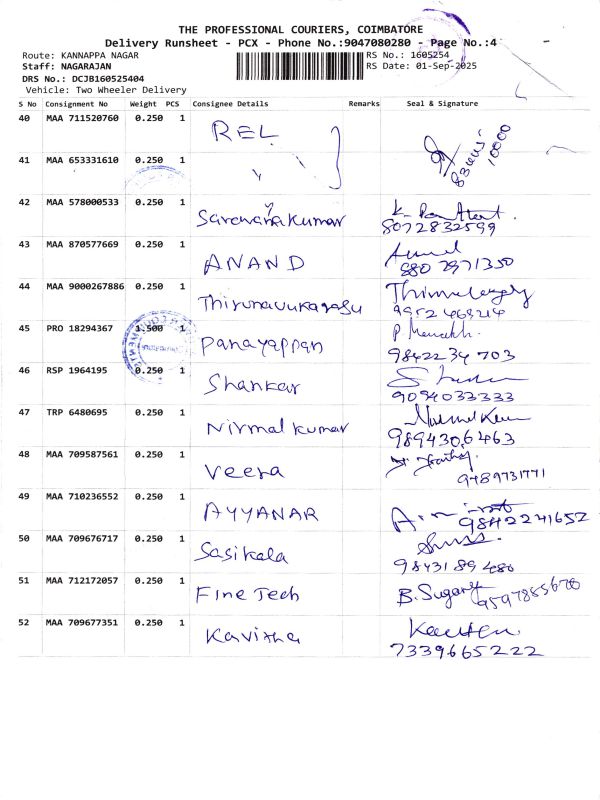 THE PROFESSIONAL COURIERS, COIMBATORE
Delivery Runsheet - PCX - Phone No.:9047080280 - Page No.:4
Route: KANNAPPA NAGAR RS No.: 1605254
Staff: NAGARAJAN RS Date: 01-Sep-2025
DRS No.: DCJB160525404
Vehicle: Two Wheeler Delivery
S No Consignment No Weight PCS Consignee Details Remarks Seal & Signature
40 MAA 711520760 0.250 1 REL
41 MAA 653331610 0.250 1 10000
42 MAA 578000533 0.250 1 Saravanakumar
8072832599
43 MAA 870577669 0.250 1 ANAND
880 2971350
44 MAA 9000267886 0.250 1 Thirunavukarasu
9952468214
45 PRO 18294367 1.500 1 Panayappan
9842234703
46 RSP 1964195 0.250 1 Shankar
9094033333
47 TRP 6480695 0.250 1 Nirmal kumar
9894306463
48 MAA 709587561 0.250 1 Veera
9789731771
49 MAA 710236552 0.250 1 AYYANAR
9842241652
50 MAA 709676717 0.250 1 Sasikala
9843189480
51 MAA 712172057 0.250 1 Fine Tech B.Sugany
52 MAA 709677351 0.250 1 Kavitha
7339665222